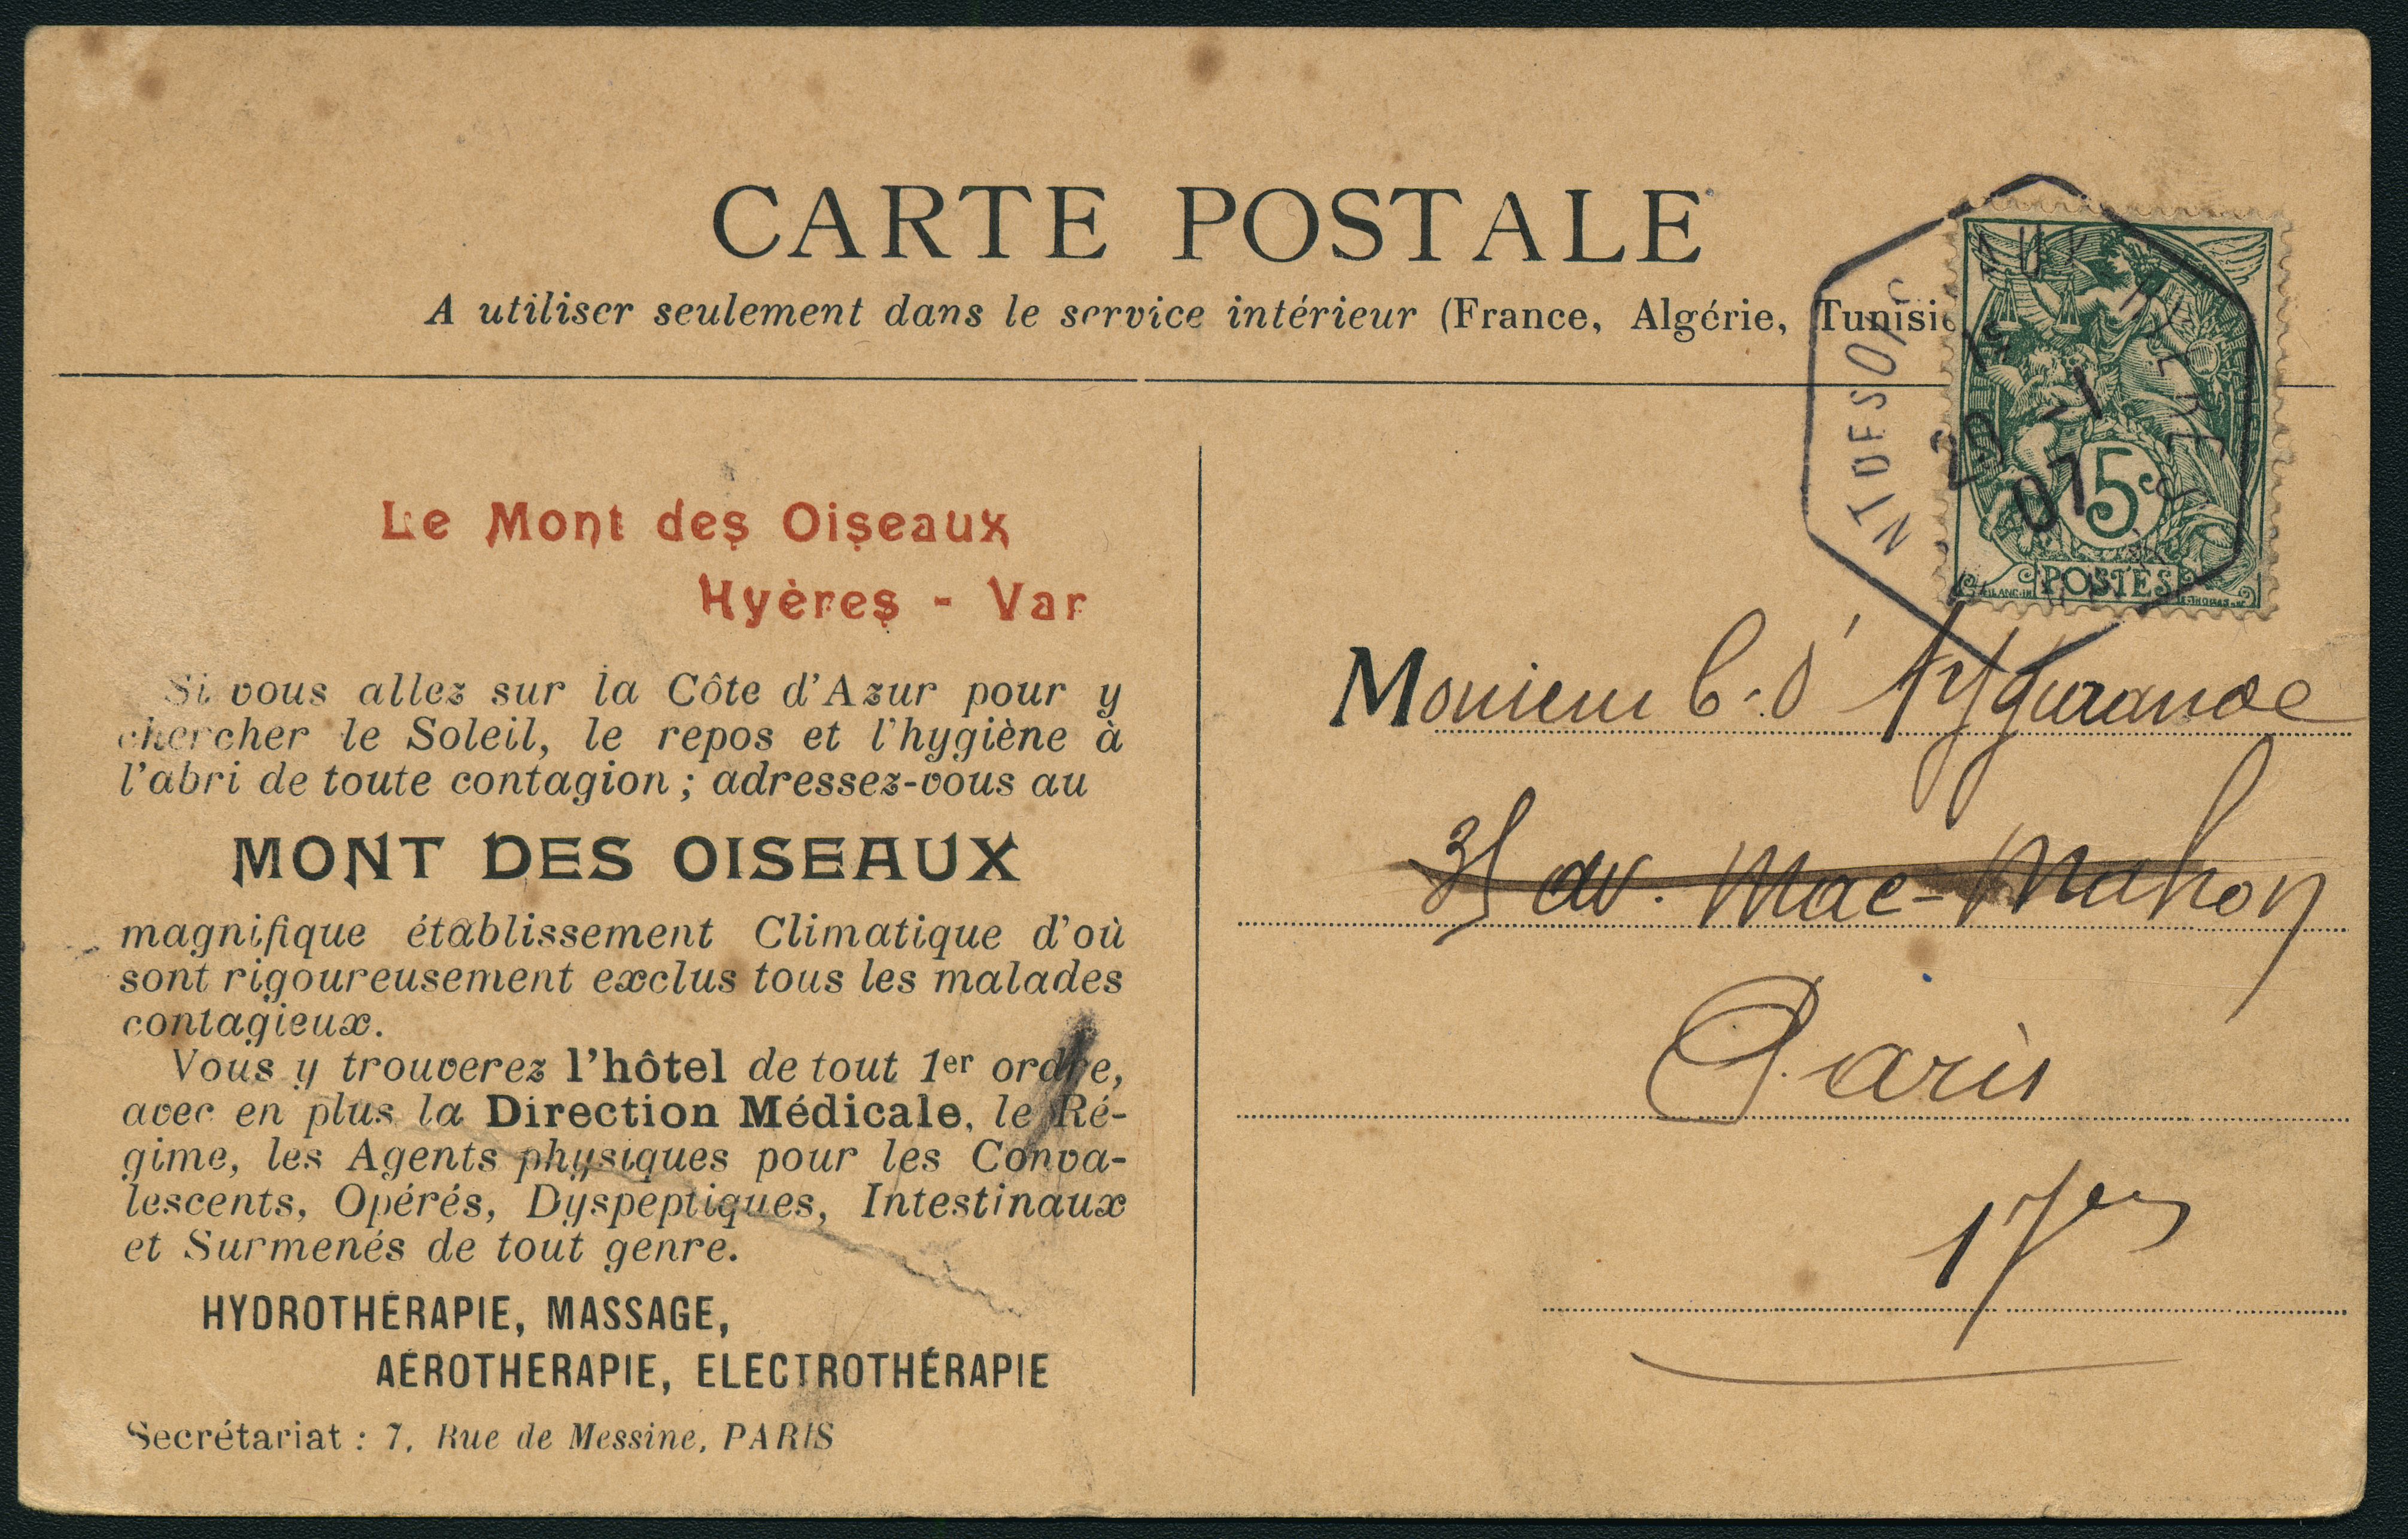 CARTE POSTALE
A utiliser seulement dans le service intérieur (France, Algérie, Tunisie
Le Mont des Oiseaux
Hyères - Var
Si vous allez sur la Côte d'Azur pour y
chercher le Soleil, le repos et l'hygiène à
l'abri de toute contagion ; adressez-vous au
MONT DES OISEAUX
magnifique établissement Climatique d'où
sont rigoureusement exclus tous les malades
contagieux.
Vous y trouverez l'hôtel de tout 1er ordre,
avec en plus la Direction Médicale, le Ré-
gime, les Agents physiques pour les Conva-
lescents, Opérés, Dyspeptiques, Intestinaux
et Surmenés de tout genre.
HYDROTHÉRAPIE, MASSAGE,
AÉROTHERAPIE, ELECTROTHÉRAPIE
Secrétariat : 7, Rue de Messine, PARIS
NT DES O
20 -1
07
5c
POSTES
Monsieur C. d'Aygurande
35 av. Mac-Mahon
Paris
17es